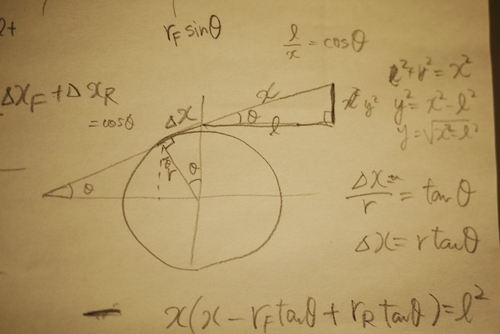 r_F sinθ
l/x = cosθ
Δx_F + Δx_R
= cosθ
Δx
x
θ
l
y²
l² + y² = x²
y² = x² - l²
y = √x² - l²
θ
r
θ
Δx/r = tanθ
Δx = r tanθ
x(x - r_F tanθ + r_R tanθ) = l²